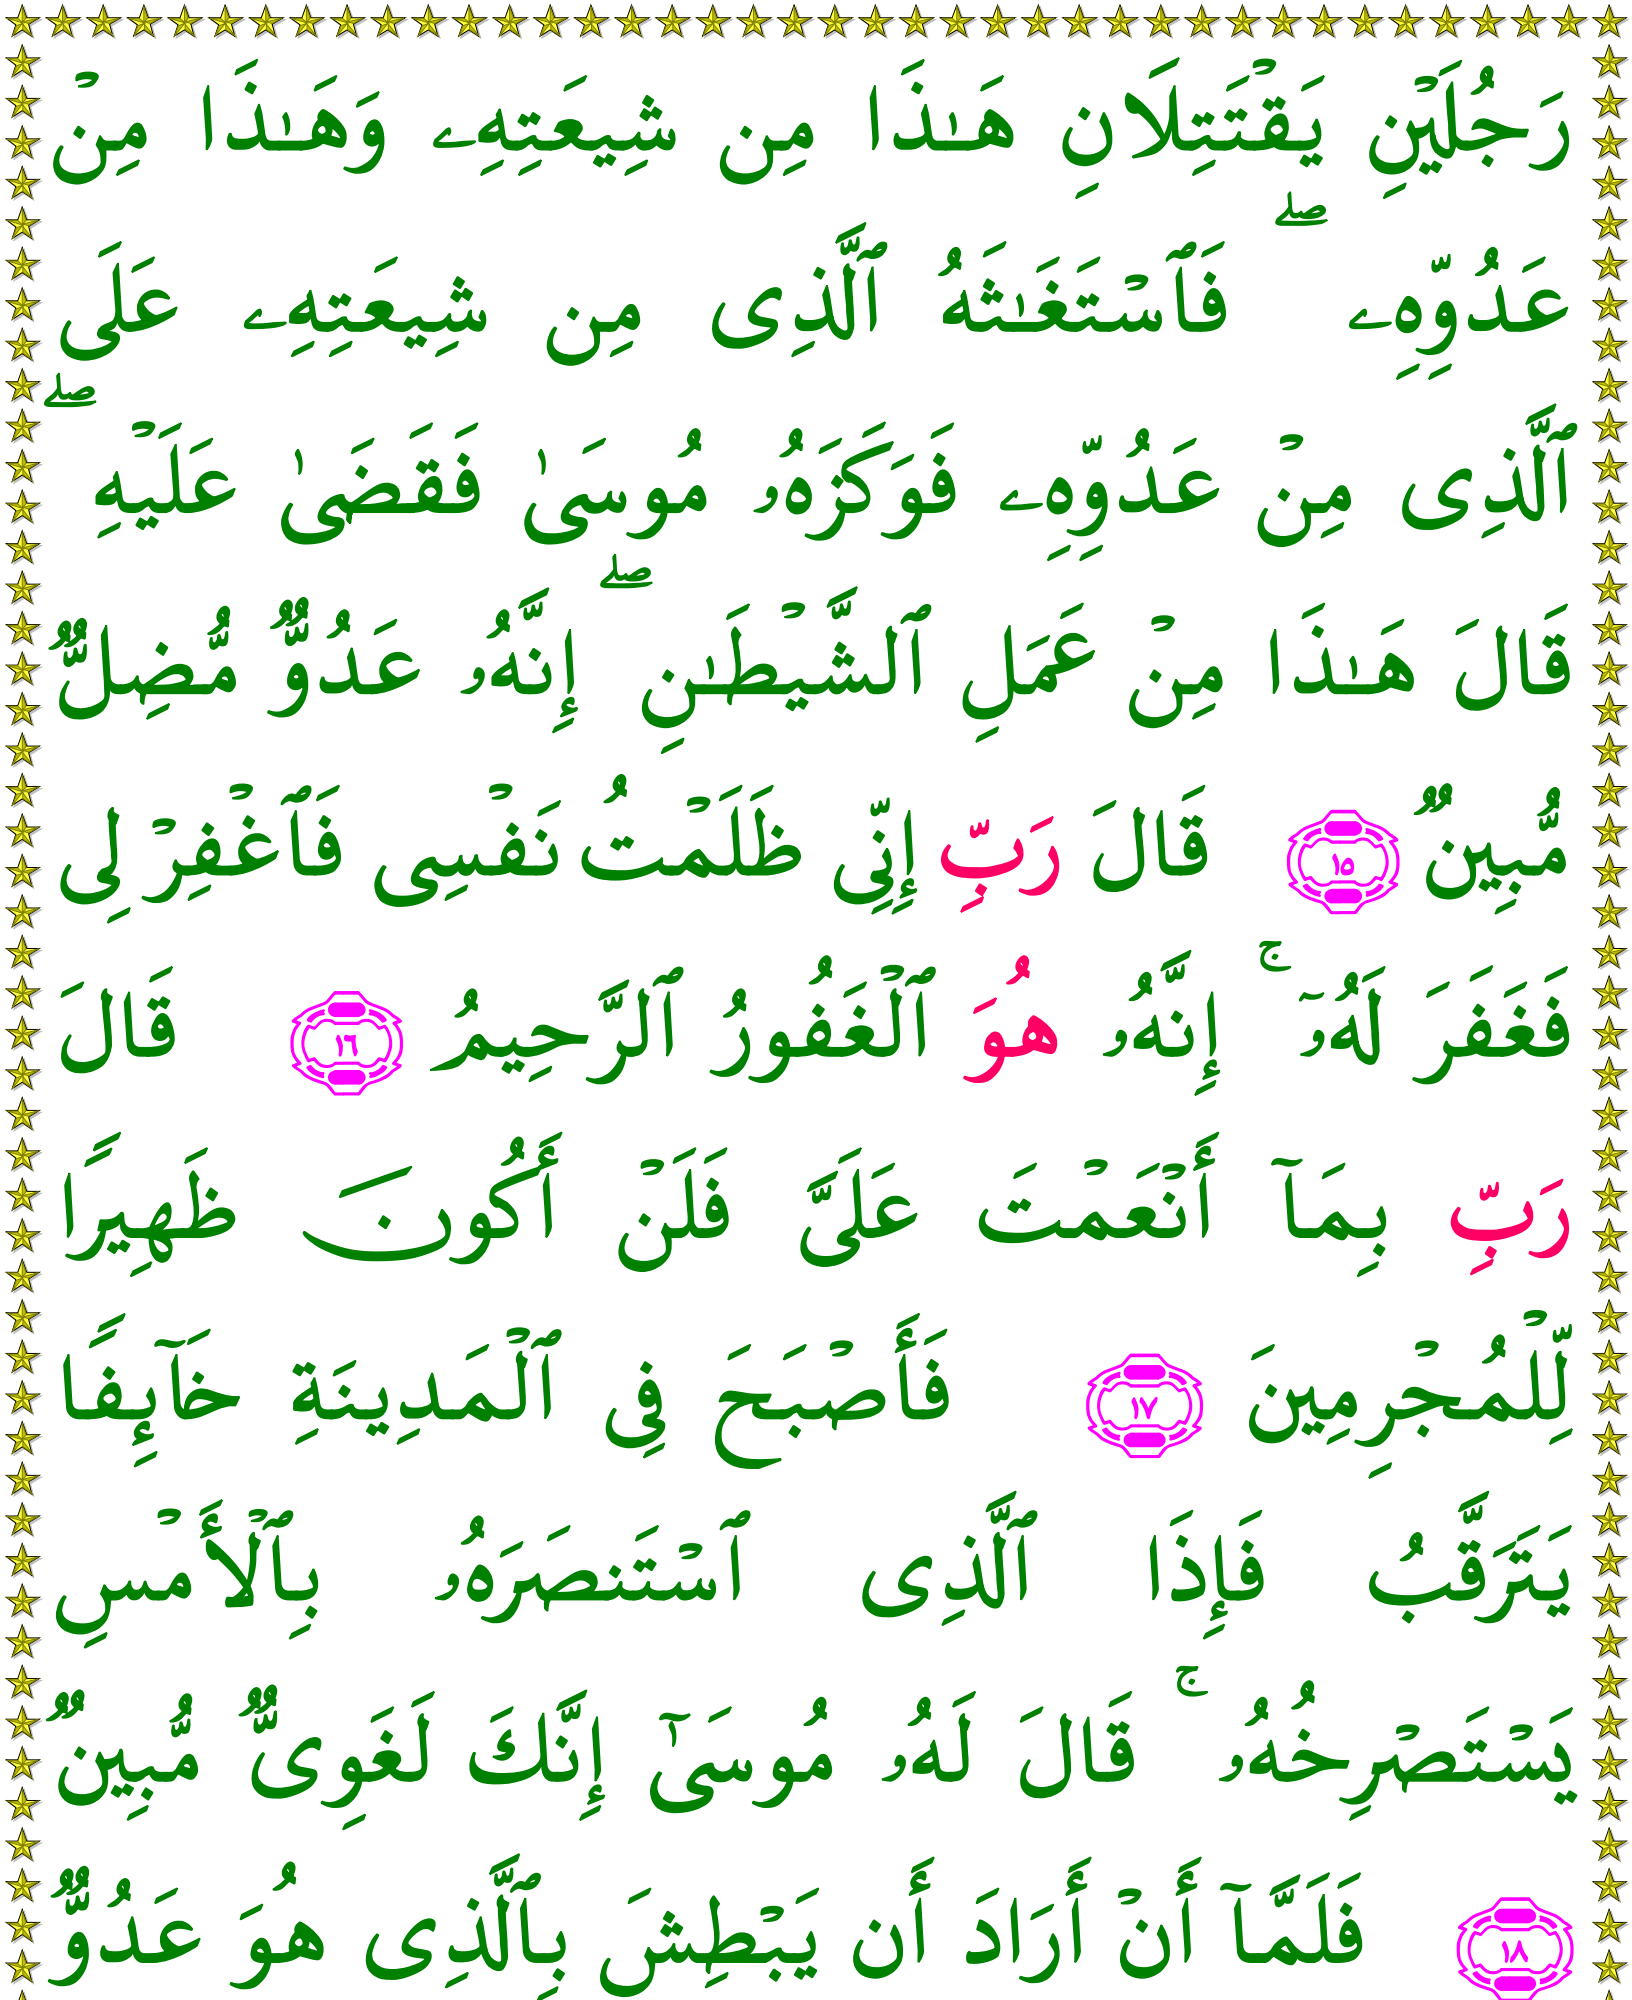 رَجُلَيْنِ يَقْتَتِلَانِ هَـٰذَا مِن شِيعَتِهِۦ وَهَـٰذَا مِنْ
عَدُوِّهِۦ ۖ فَٱسْتَغَـٰثَهُ ٱلَّذِى مِن شِيعَتِهِۦ عَلَى
ٱلَّذِى مِنْ عَدُوِّهِۦ فَوَكَزَهُۥ مُوسَىٰ فَقَضَىٰ عَلَيْهِ ۖ
قَالَ هَـٰذَا مِنْ عَمَلِ ٱلشَّيْطَـٰنِ ۖ إِنَّهُۥ عَدُوٌّ مُّضِلٌّ
مُّبِينٌ ١٥ قَالَ رَبِّ إِنِّى ظَلَمْتُ نَفْسِى فَٱغْفِرْ لِى
فَغَفَرَ لَهُۥٓ ۚ إِنَّهُۥ هُوَ ٱلْغَفُورُ ٱلرَّحِيمُ ١٦ قَالَ
رَبِّ بِمَآ أَنْعَمْتَ عَلَىَّ فَلَنْ أَكُونَ ظَهِيرًا
لِّلْمُجْرِمِينَ ١٧ فَأَصْبَحَ فِى ٱلْمَدِينَةِ خَآئِفًا
يَتَرَقَّبُ فَإِذَا ٱلَّذِى ٱسْتَنصَرَهُۥ بِٱلْأَمْسِ
يَسْتَصْرِخُهُۥ ۚ قَالَ لَهُۥ مُوسَىٰٓ إِنَّكَ لَغَوِىٌّ مُّبِينٌ
١٨ فَلَمَّآ أَنْ أَرَادَ أَن يَبْطِشَ بِٱلَّذِى هُوَ عَدُوٌّ